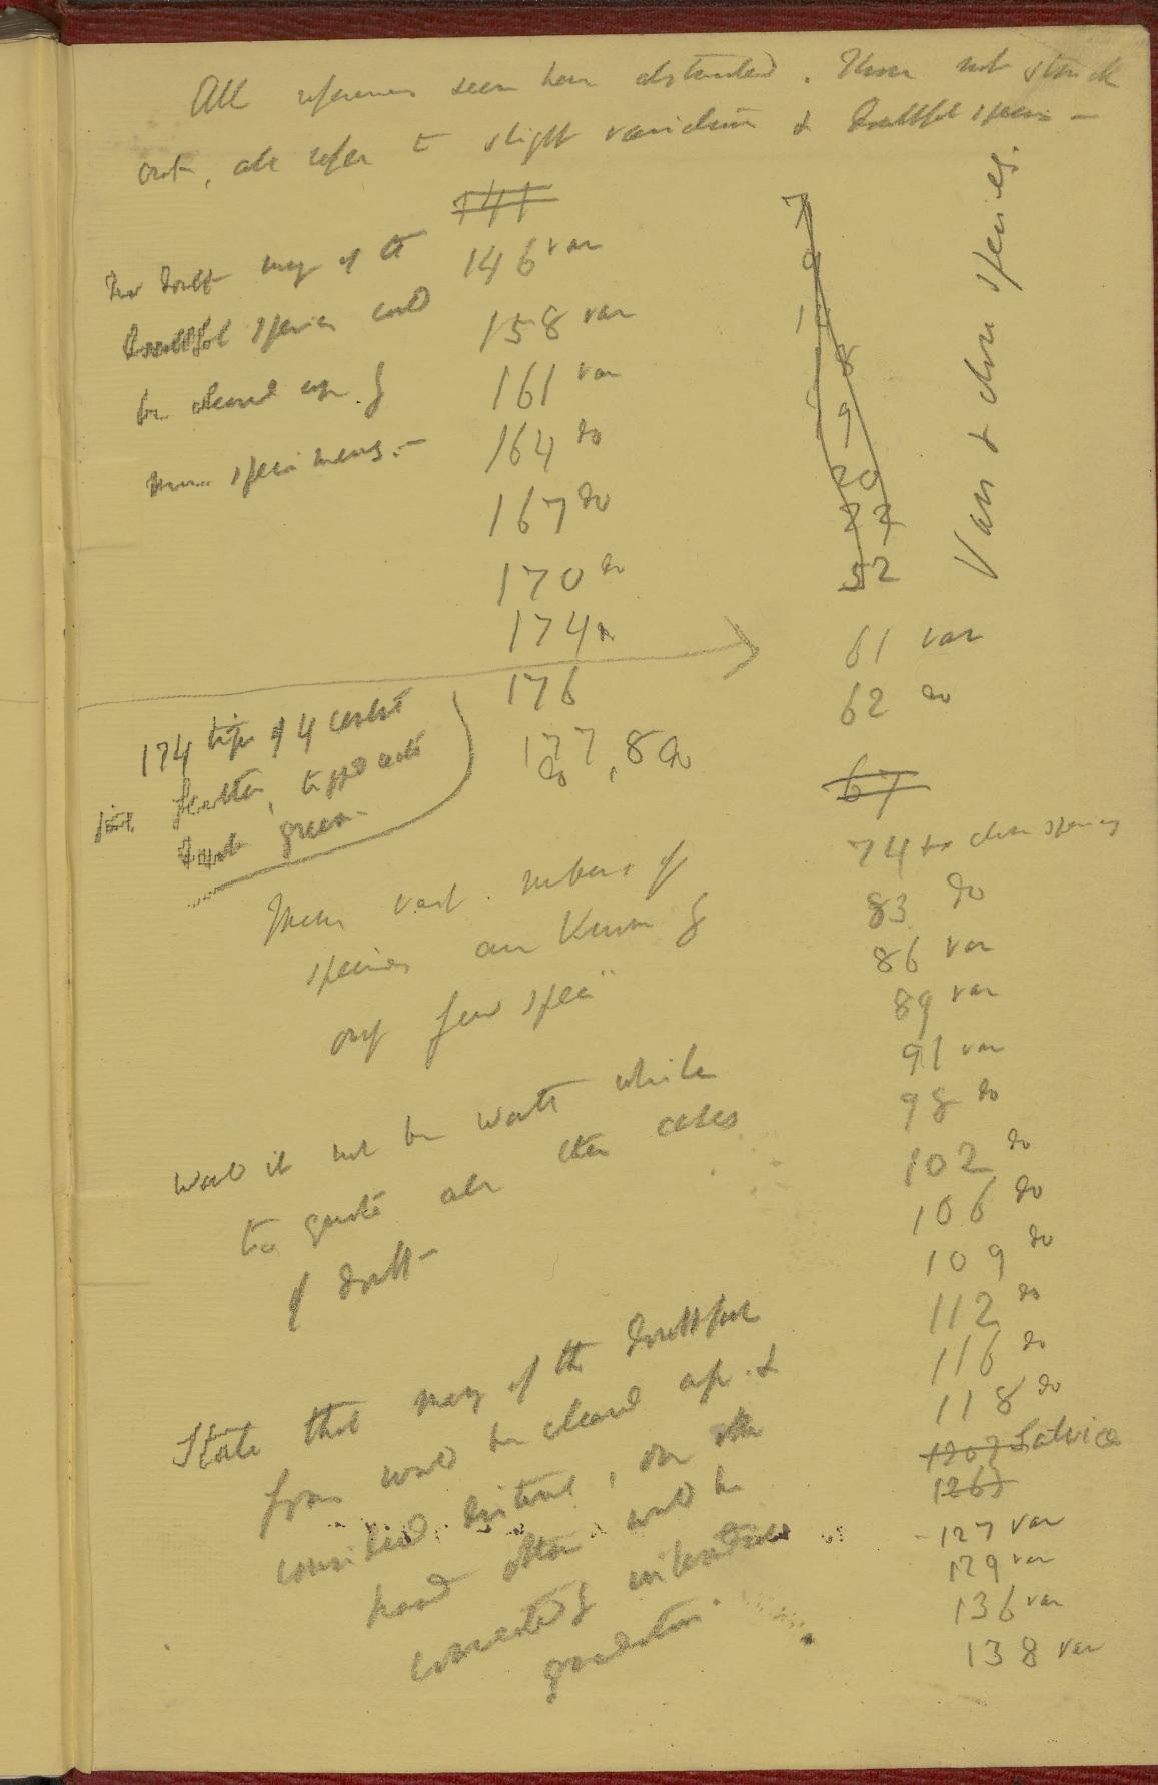 All references seem here abstracted. Those not struck
out, all refer to slight variations & doubtful species —
Vars & close species.
No doubt many of the
doubtful species could
be cleared up by
more specimens. —
141
146 var
158 var
161 var
164 do
167 do
170 do
174
176
177, 8 do
do
174 tips of 4 central
feathers, tipped with
dark green.
These vast numbers of
species are known by
only few spec
would it not be worth while
to quote all the cases
of doubt —
State that many of the doubtful
forms would be cleared up &
considered distinct, on other
hand others would be
connected by intermediate
gradations.
7
9
8
9
20
27
52
61 var
62 do
67
74 close species
83 do
86 var
89 var
91 var
98 do
102 do
106 do
109 do
112 do
116 do
118 do
Salvia
126
127 var
129 var
136 var
138 var